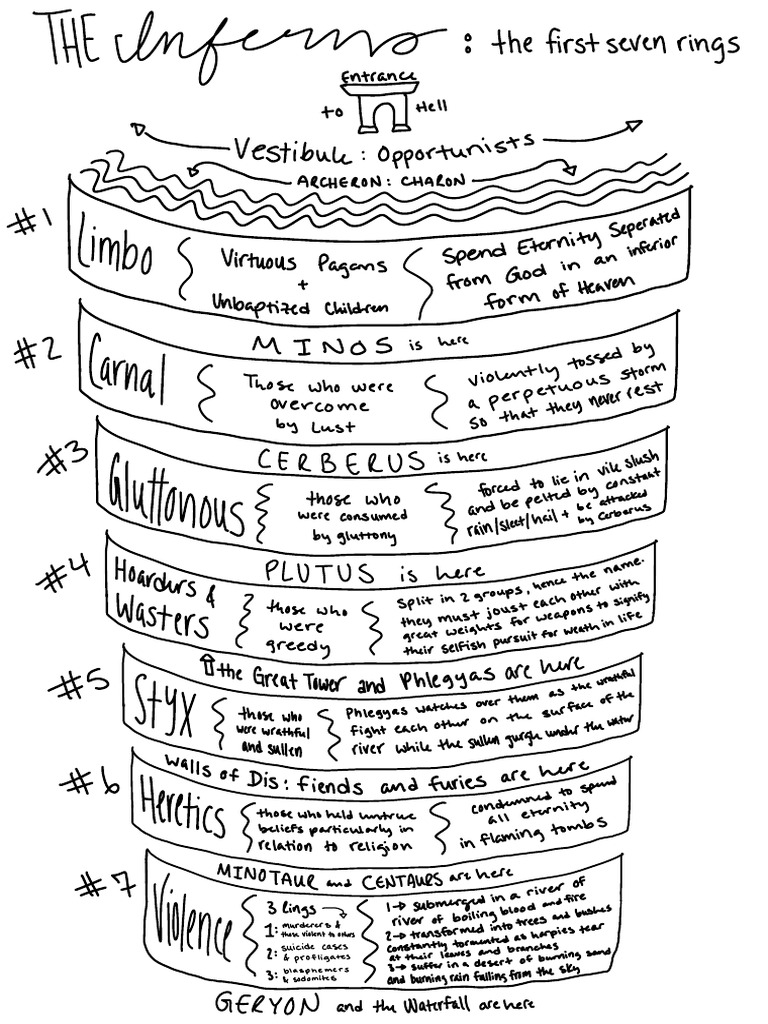 THE Inferno : the first seven rings
Entrance
to Hell
Vestibule : Opportunists
ARCHERON : CHARON
#1
Limbo
Virtuous Pagans
+
Unbaptized Children
Spend Eternity Seperated
from God in an inferior
form of Heaven
MINOS is here
#2
Carnal
Those who were
overcome
by Lust
violently tossed by
a perpetuous storm
so that they never rest
CERBERUS is here
#3
Gluttonous
those who
were consumed
by gluttony
forced to lie in vile slush
and be pelted by constant
rain/sleet/hail + be attacked
by Cerberus
PLUTUS is here
#4
Hoarders &
Wasters
those who
were
greedy
Split in 2 groups, hence the name.
they must joust each other with
great weights for weapons to signify
their selfish pursuit for weath in life
the Great Tower and Phlegyas are here
#5
Styx
those who
were wrathful
and sullen
Phlegyas watches over them as the wrathful
fight each other on the surface of the
river while the sullen gurgle under the water
walls of Dis : fiends and furies are here
#6
Heretics
those who held untrue
beliefs particularly in
relation to religion
condemned to spend
all eternity
in flaming tombs
MINOTAUR and CENTAURS are here
#7
Violence
3 rings →
1: murderers &
those violent to others
2: suicide cases
& profligates
3: blasphemers
& sodomites
1→ submerged in a river of
river of boiling blood and fire
2→ transformed into trees and bushes
constantly tormented as harpies tear
at their leaves and branches
3→ suffer in a desert of burning sand
and burning rain falling from the sky
GERYON and the Waterfall are here